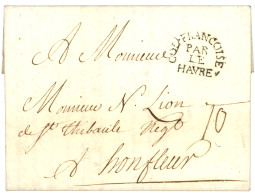 A Monsieur
COL. FRANCOISE
PAR
LE
HAVRE
Monsieur N. Lion
de St Thibault Negt
10
A honfleur